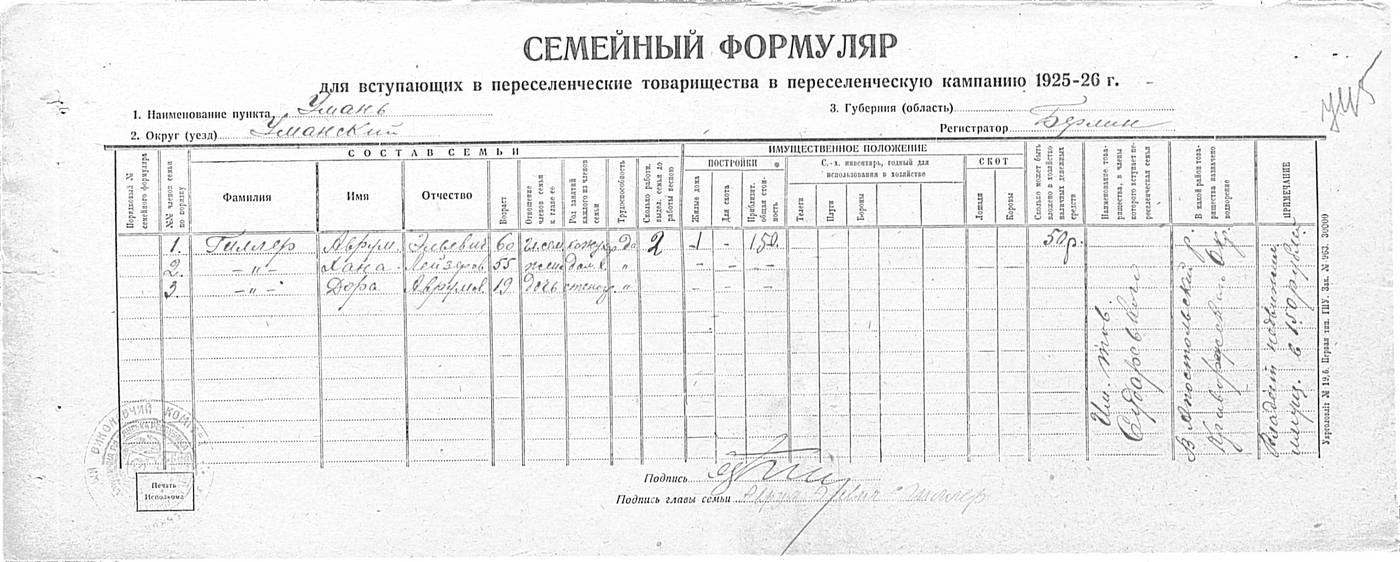 СЕМЕЙНЫЙ ФОРМУЛЯР
для вступающих в переселенческие товарищества в переселенческую кампанию 1925-26 г.
1. Наименование пункта Умань
3. Губерния (область)
2. Округ (уезд) Уманский
Регистратор Берлин
Порядковый № семейного формуляра
№№ членов семьи по порядку
СОСТАВ СЕМЬИ
Фамилия
Имя
Отчество
Возраст
Отношение членов семьи к главе ее
Род занятий каждого из членов семьи
Трудоспособность
Сколько работн. выдел. семья до работы весною
ИМУЩЕСТВЕННОЕ ПОЛОЖЕНИЕ
ПОСТРОЙКИ
Жилые дома
Для скота
Приблизит. общая стоимость
С.-х. инвентарь, годный для использования в хозяйстве
Телеги
Плуги
Бороны
СКОТ
Лошади
Коровы
Сколько может быть вложено в хозяйство наличных денежных средств
Наименование товарищества, в члены которого вступает переселенческая семья
В какой район товарищества назначено водворение
ПРИМЕЧАНИЕ
1. Гиллер Аврум Эльевич 60 да 2 1 - 150 50р.
2. -"- Хана Лейзеров 55 " - - -
3. -"- Дора Аврумов. 19 дочь "
Им. тов.
В Апостольский р.
Криворожский Окр.
Владеет недвижим.
имущ. в 150 рублей
Укрголовліт № 19,6. Первая тип. ГПУ. Зак. № 963. 30000
ВИКОНАВЧИЙ КОМІТЕТ
Печать Исполкома
Подпись
Подпись главы семьи Аврум Гиллер